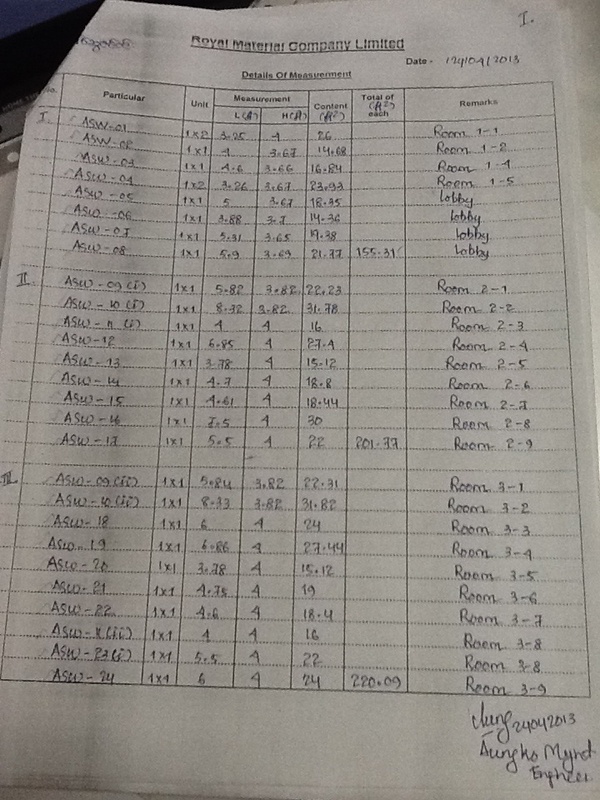 I.
Royal Material Company Limited
Date - 24/04/2013
Details Of Measurment
No. Particular Unit Measurement Content (ft²) Total of (ft²) each Remarks
L (ft) H (ft)
I. ASW-01 1x2 3.25 4 26 Room 1-1
ASW-02 1x1 4 3.67 14.68 Room 1-2
ASW-03 1x1 4.6 3.66 16.84 Room 1-4
ASW-04 1x2 3.26 3.67 23.93 Room 1-5
ASW-05 1x1 5 3.67 18.35 Lobby
ASW-06 1x1 3.88 3.7 14.36 Lobby
ASW-07 1x1 5.31 3.65 19.38 Lobby
ASW-08 1x1 5.9 3.69 21.77 155.31 Lobby
II. ASW-09(i) 1x1 5.82 3.82 22.23 Room 2-1
ASW-10(i) 1x1 8.32 3.82 31.78 Room 2-2
ASW-11(i) 1x1 4 4 16 Room 2-3
ASW-12 1x1 6.85 4 27.4 Room 2-4
ASW-13 1x1 3.78 4 15.12 Room 2-5
ASW-14 1x1 4.7 4 18.8 Room 2-6
ASW-15 1x1 4.61 4 18.44 Room 2-7
ASW-16 1x1 7.5 4 30 Room 2-8
ASW-17 1x1 5.5 4 22 201.77 Room 2-9
III. ASW-09(ii) 1x1 5.84 3.82 22.31 Room 3-1
ASW-10(ii) 1x1 8.33 3.82 31.82 Room 3-2
ASW-18 1x1 6 4 24 Room 3-3
ASW-19 1x1 6.86 4 27.44 Room 3-4
ASW-20 1x1 3.78 4 15.12 Room 3-5
ASW-21 1x1 4.75 4 19 Room 3-6
ASW-22 1x1 4.6 4 18.4 Room 3-7
ASW-11(ii) 1x1 4 4 16 Room 3-8
ASW-23(i) 1x1 5.5 4 22 Room 3-8
ASW-24 1x1 6 4 24 220.09 Room 3-9
24042013
Engineer